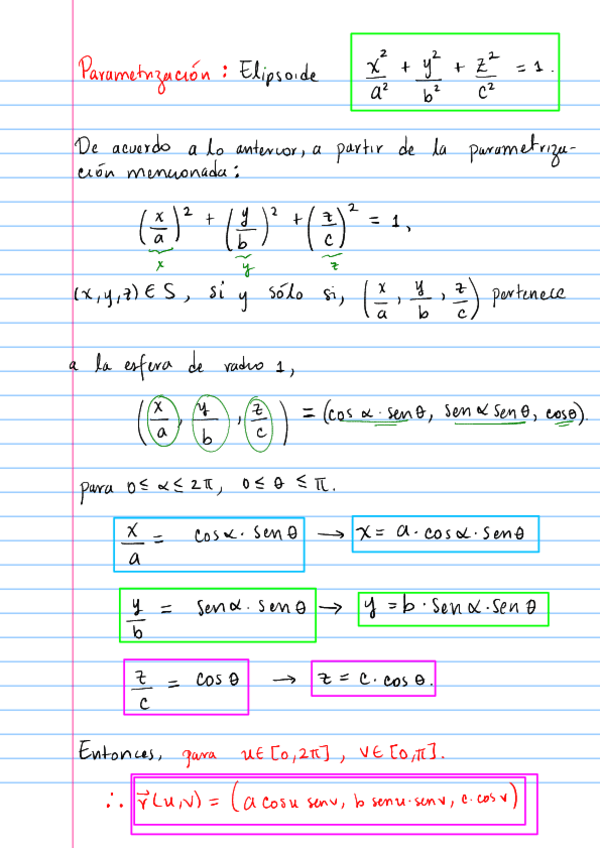 Parametrización : Elipsoide x²/a² + y²/b² + z²/c² = 1.
De acuerdo a lo anterior, a partir de la parametriza-
ción mencionada:
(x/a)² + (y/b)² + (z/c)² = 1,
x y z
(x,y,z) ∈ S, si y sólo si, (x/a, y/b, z/c) pertenece
a la esfera de radio 1,
(x/a, y/b, z/c) = (cos α · sen θ, sen α sen θ, cos θ).
para 0 ≤ α ≤ 2π, 0 ≤ θ ≤ π.
x/a = cos α · sen θ → x = a · cos α · sen θ
y/b = sen α · sen θ → y = b · sen α · sen θ
z/c = cos θ → z = c · cos θ.
Entonces, para u ∈ [0,2π], v ∈ [0,π].
∴ r⃗(u,v) = (a cosu senv, b senu · senv, c · cosv)